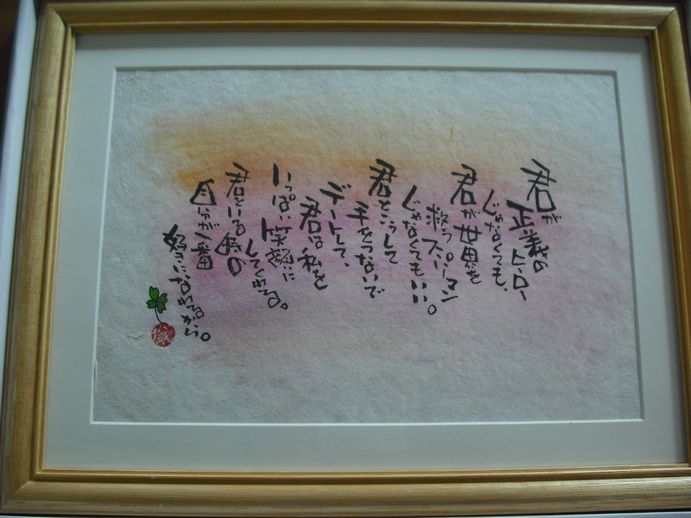 君が
正義のヒーロー
じゃなくても、
君が世界を
救うスーパーマン
じゃなくてもいい。
君とこうして
手をつないで
デートして、
君は私を
いっぱい笑顔に
してくれる。
君といる時の
自分が一番
好きになれるから。